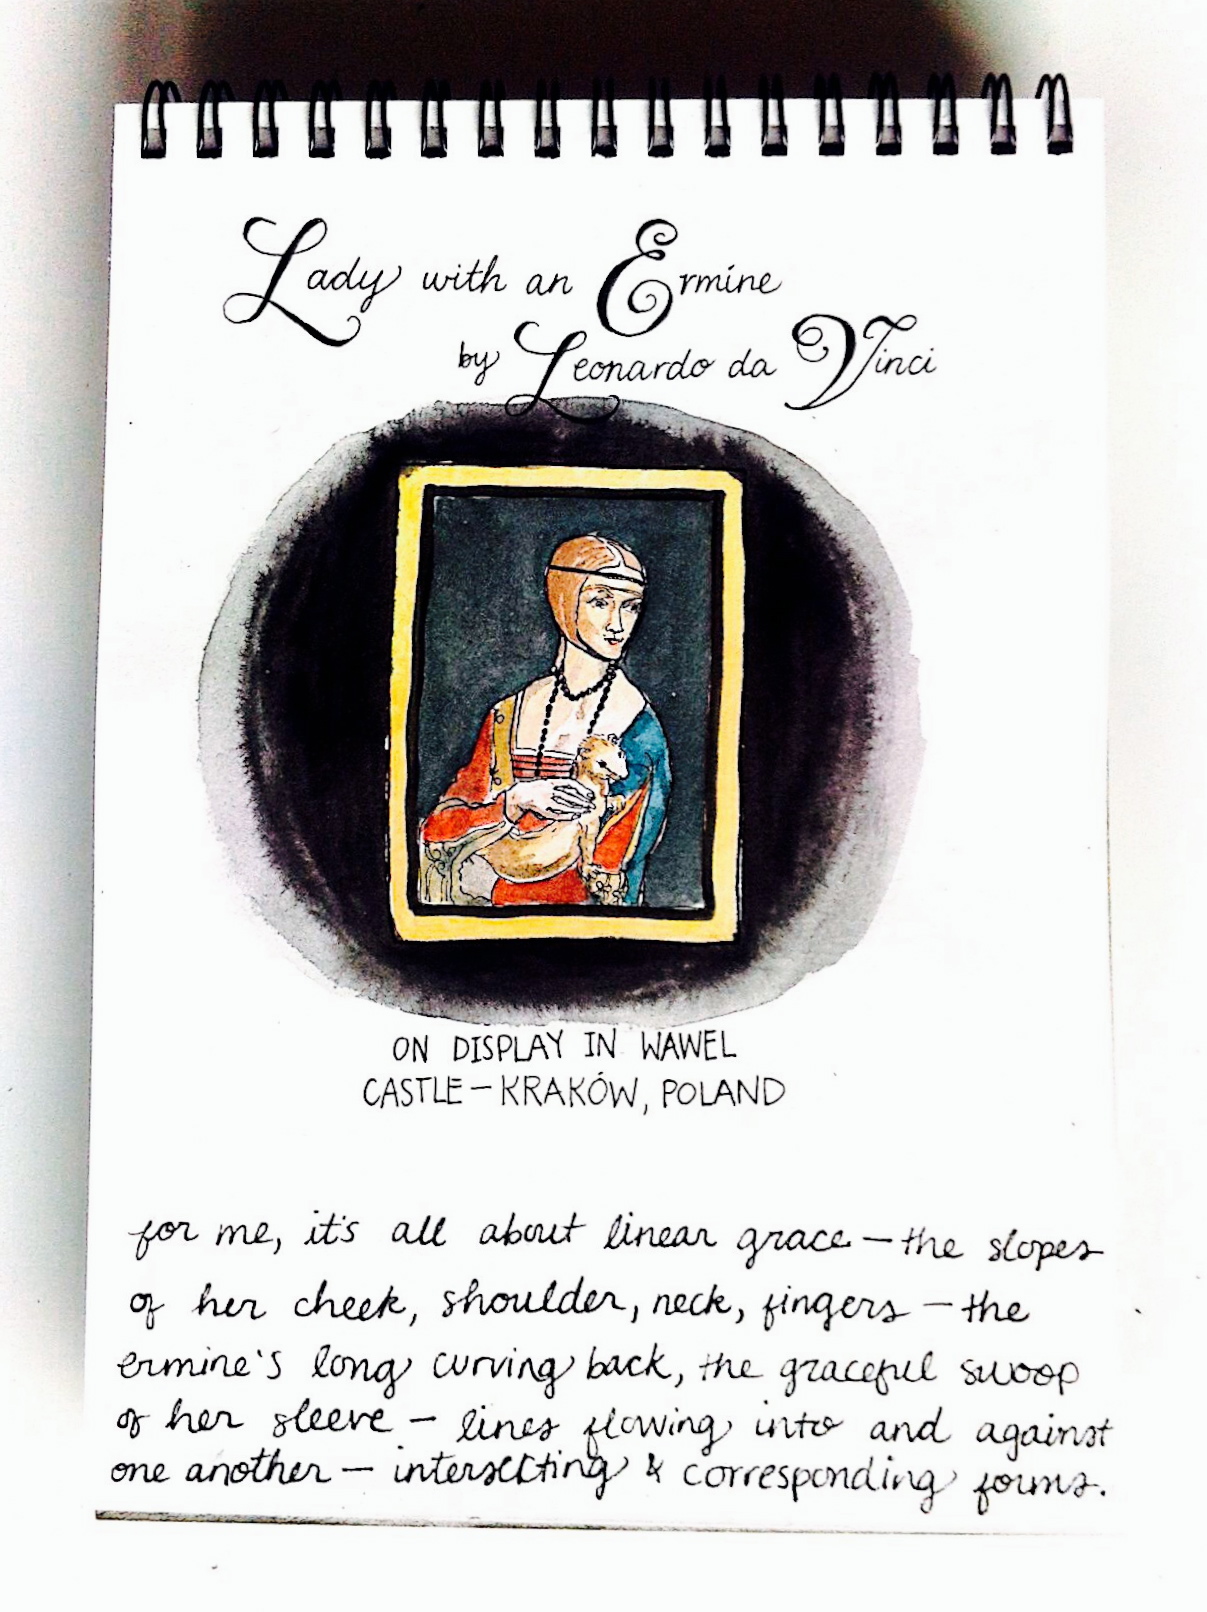 Lady with an Ermine
by Leonardo da Vinci
ON DISPLAY IN WAWEL
CASTLE – KRAKÓW, POLAND
for me, it's all about linear grace – the slopes
of her cheek, shoulder, neck, fingers – the
ermine's long curving back, the graceful swoop
of her sleeve – lines flowing into and against
one another – intersecting & corresponding forms.